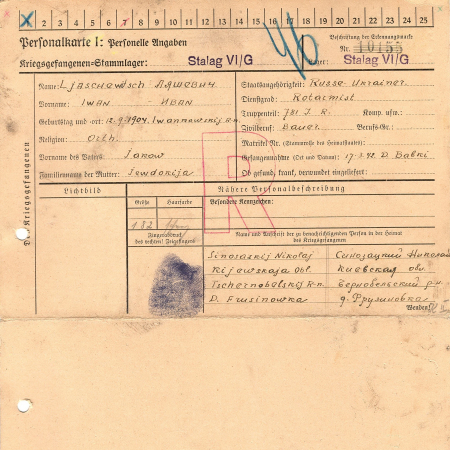 X 2 3 4 5 6 7 8 9 10 11 12 13 14 15 16 17 18 19 20 21 22 23 24 25
Personalkarte I: Personelle Angaben
Kriegsgefangenen-Stammlager: Stalag VI/G
Beschriftung der Erkennungsmarke
Nr. 10155
Lager: Stalag VI/G
Des Kriegsgefangenen
Name: Ljaschewitsch Ляшевич
Vorname: Iwan - Иван
Geburtstag und -ort: 12.9.1904. Iwannowskij R-n.
Religion: Orth.
Vorname des Vaters: Jakow
Familienname der Mutter: Jewdokija
Staatsangehörigkeit: Russe-Ukrainer
Dienstgrad: Rotarmist
Truppenteil: 781 I. R. Komp. usw.:
Zivilberuf: Bauer Berufs-Gr.:
Matrikel Nr. (Stammrolle des Heimatstaates):
Gefangennahme (Ort und Datum): 17.7.42 D. Babki
Ob gesund, krank, verwundet eingeliefert:
Lichtbild
Nähere Personalbeschreibung
Größe
Haarfarbe
Besondere Kennzeichen:
1.82
R
Fingerabdruck
des rechten! Zeigefingers
Name und Anschrift der zu benachrichtigenden Person in der Heimat
des Kriegsgefangenen
Sinozaskij Nikolaj Синозацкий Николай
Kijewskaja Obl. Киевская обл.
Tschernobelskij R-n. Чернобельский р-н
D. Frusinowka д. Фрузиновка
Wenden!